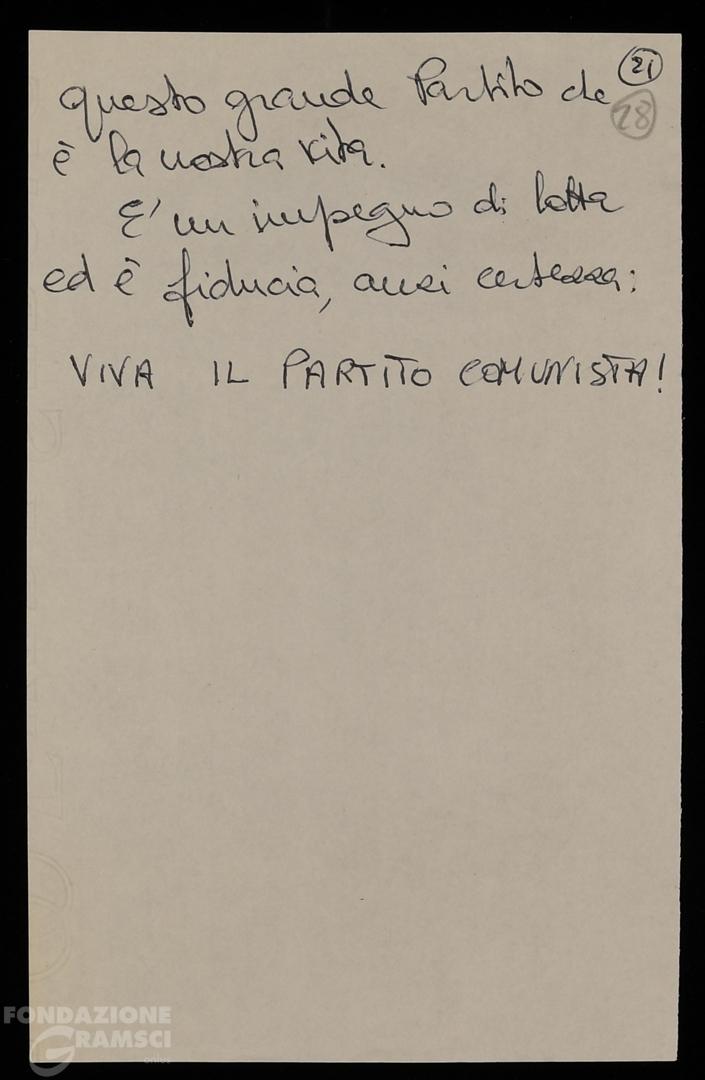 questo grande Partito che
21
28
è la nostra vita.
E' un impegno di lotta
ed è fiducia, anzi certezza:
VIVA IL PARTITO COMUNISTA!
FONDAZIONE
GRAMSCI
onlus